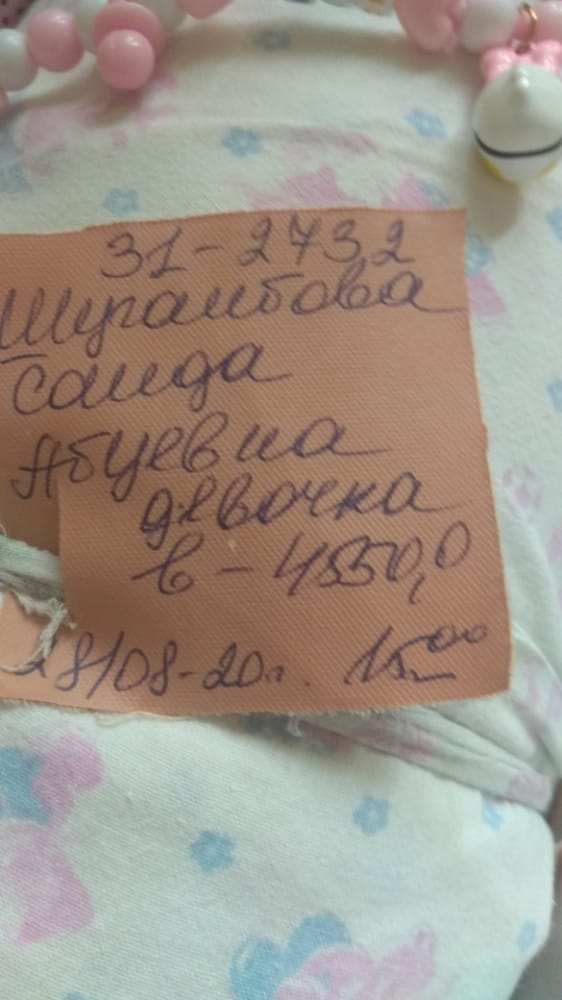 31-2732
Шугаибова
Саида
Абуевна
девочка
в-4550,0
28/08-20г. 15⁰⁰